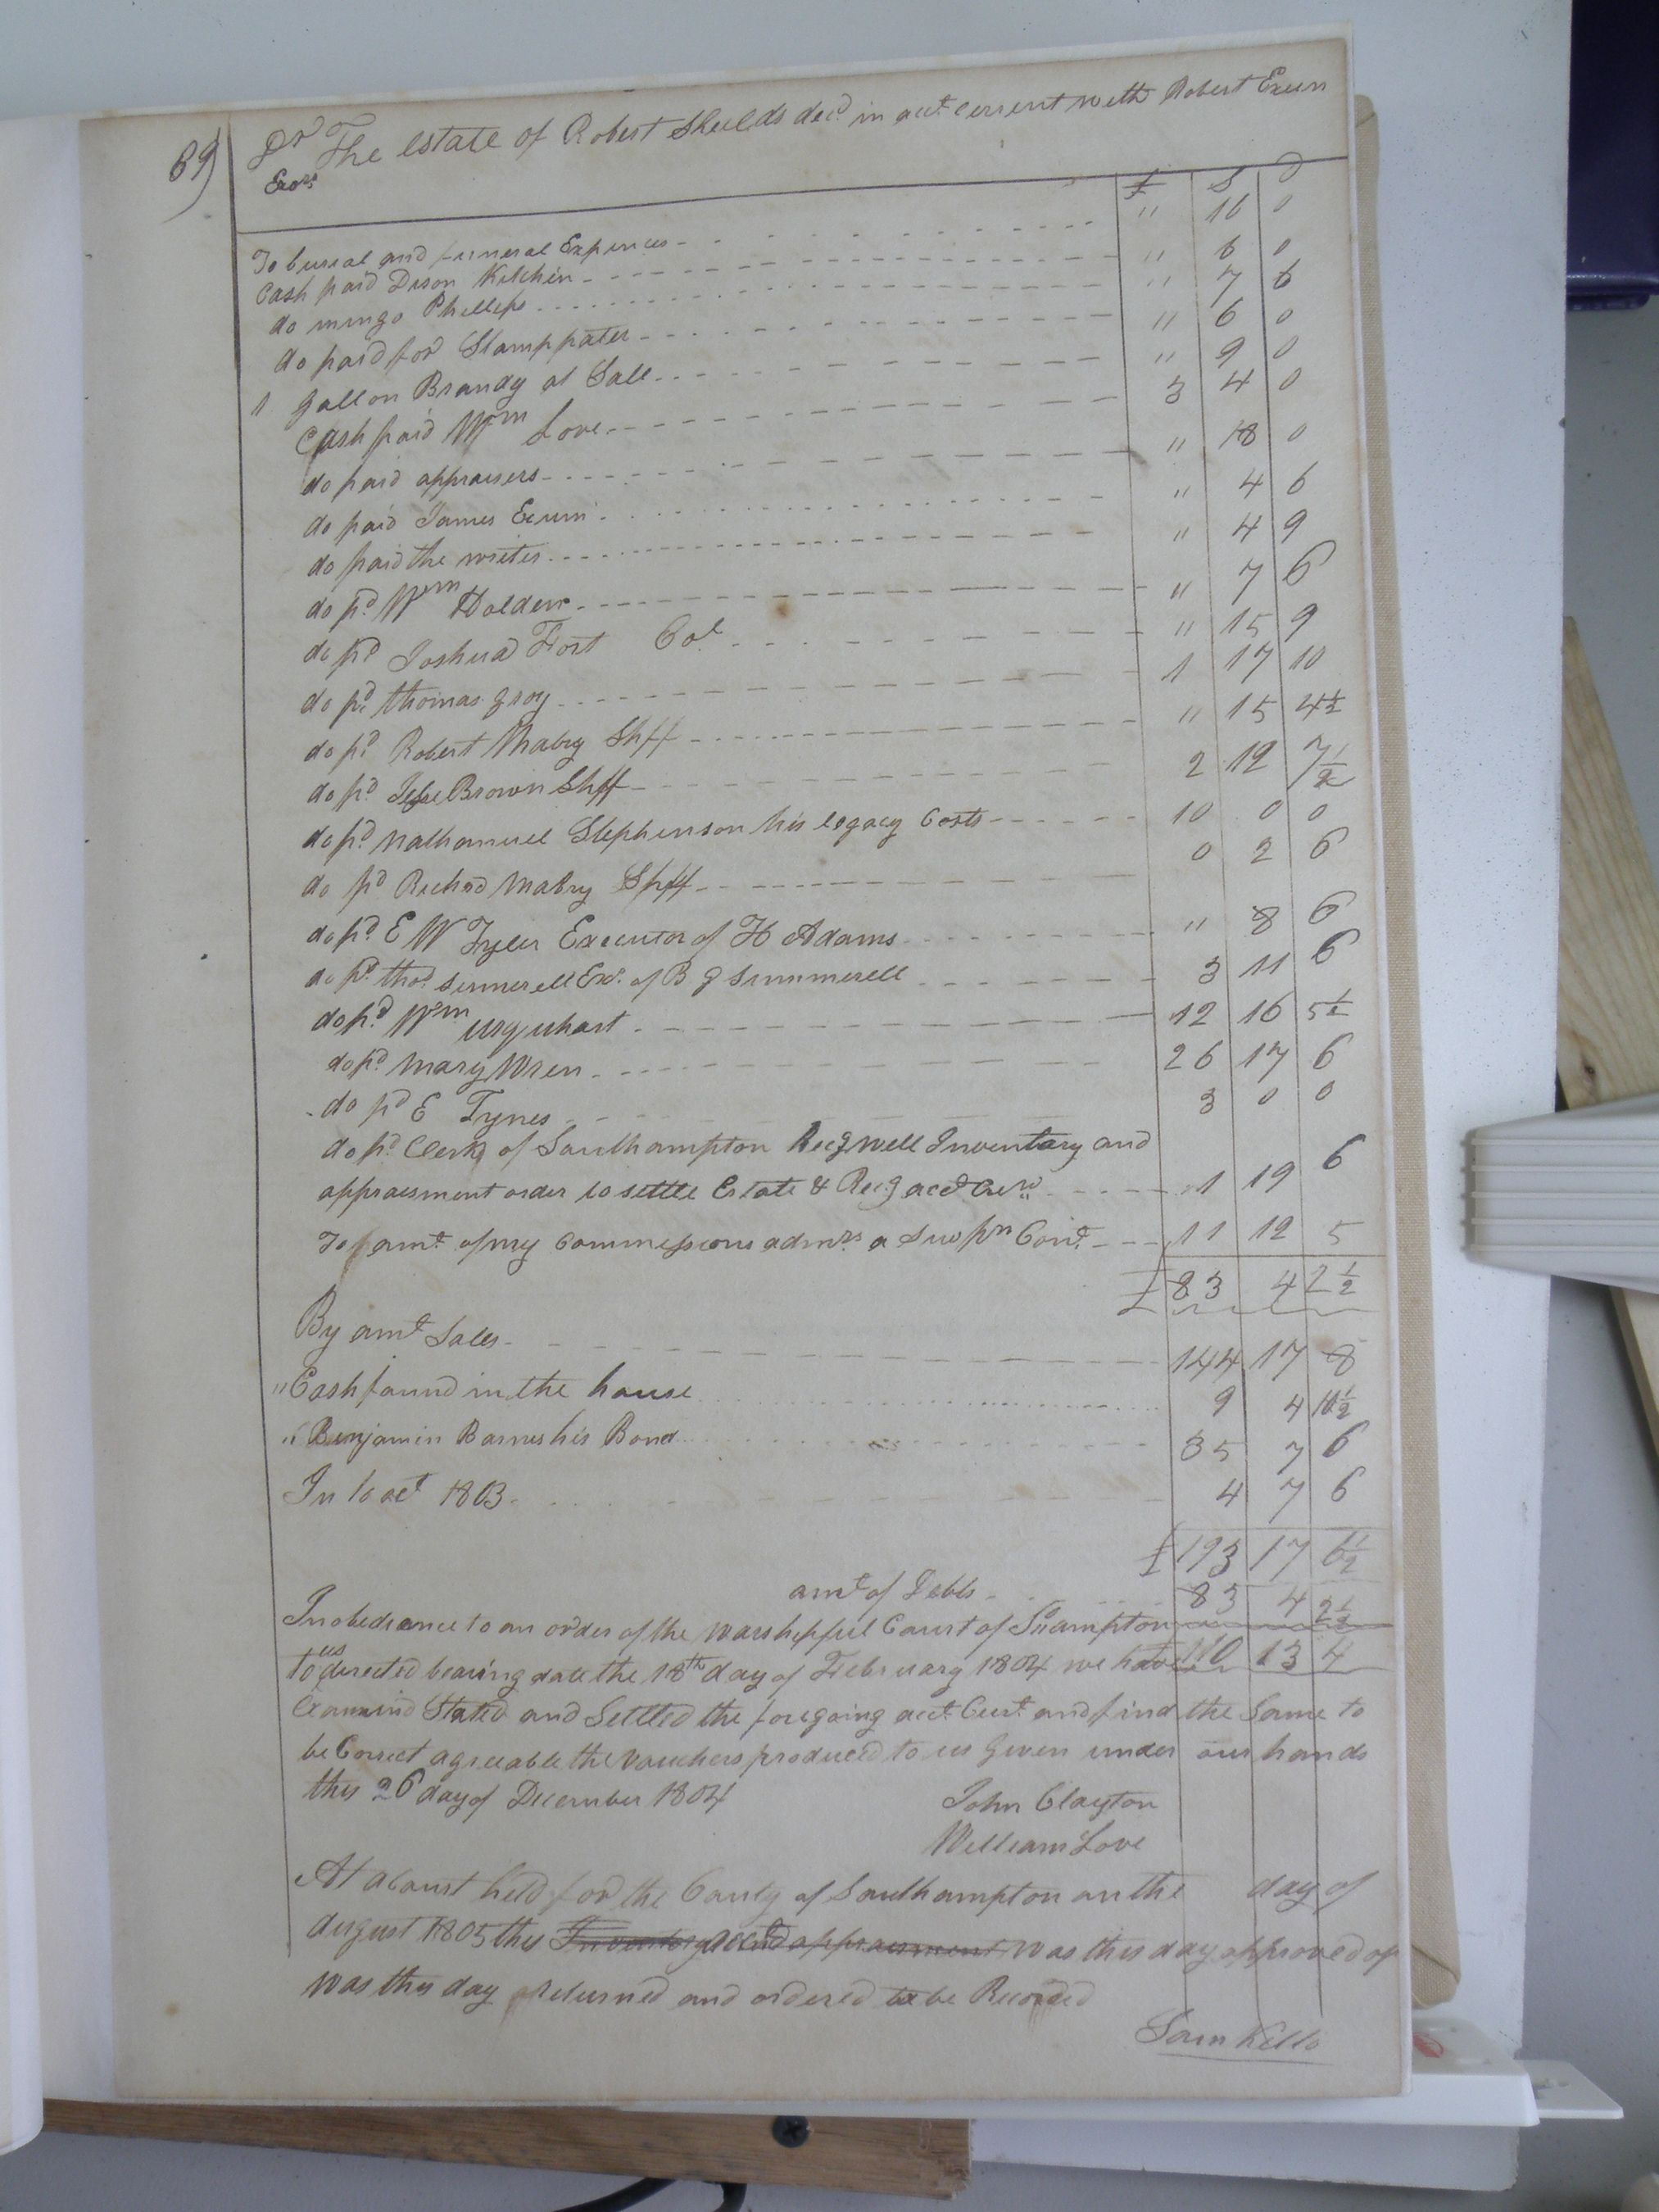 89)
Dr The estate of Robert Shields decd. in acct. current with Robert Exum
Exors
£ S D
To burial and funeral Expences " 16 0
Cash paid Dison Kitchin " 6 0
do mingo Phillips " 7 6
do paid for Stamp pater " 6 0
1 gallon Brandy at Sale " 9 0
Cash paid Wm Love 3 4 0
do paid appraisers " 18 0
do paid James Exum " 4 6
do paid the writer " 4 9
do pd. Wm Holden " 7 6
do pd Joshua Fort Col. " 15 9
do pd. thomas gray 1 17 10
do pd. Robert Mabry Shff " 15 4½
do pd. Jesse Brown Shff 2 12 7½
do pd. Nathaniel Stephenson his legacy Costs 10 0 0
do pd Richrd Mabry Shff 0 2 6
do pd. E W Tyler Executor of H Adams " 8 6
do pd. thos. simmerell Exr. of B g Simmerell 3 11 6
do pd. Wm Urquhart 12 16 5½
do pd. Mary Wren 26 17 6
do pd E Tynes 3 0 0
do pd. Clerk of Southampton Recg will Inventary and
appraisment order to settle Estate & Recg acct Cur 1 19 6
To amt. of my Commissions 11 12 5
£ 83 4 2½
By amt. Sales 144 17 8
" Cash found in the house 9 4 10½
" Benjamin Barnes his Bond 35 7 6
In to act 1803 4 7 6
£ 193 17 6½
amt. of Debts 83 4 2½
In obedience to an order of the Worshipful Court of So.ampton
to us directed bearing date the 18th day of February 1804 we have 110 13 4
Examind Stated and Settled the foregoing acct. Curt. and find the Same to
be Correct agreeable the Vouchers produced to us Given under our hands
this 26 day of December 1804
John Clayton
William Love
At a Court held for the County of Southampton on the day of
August 1805 this Inventory acct. and appraisment was this day approved of
was this day Returned and ordered to be Recorded
Sam Kello